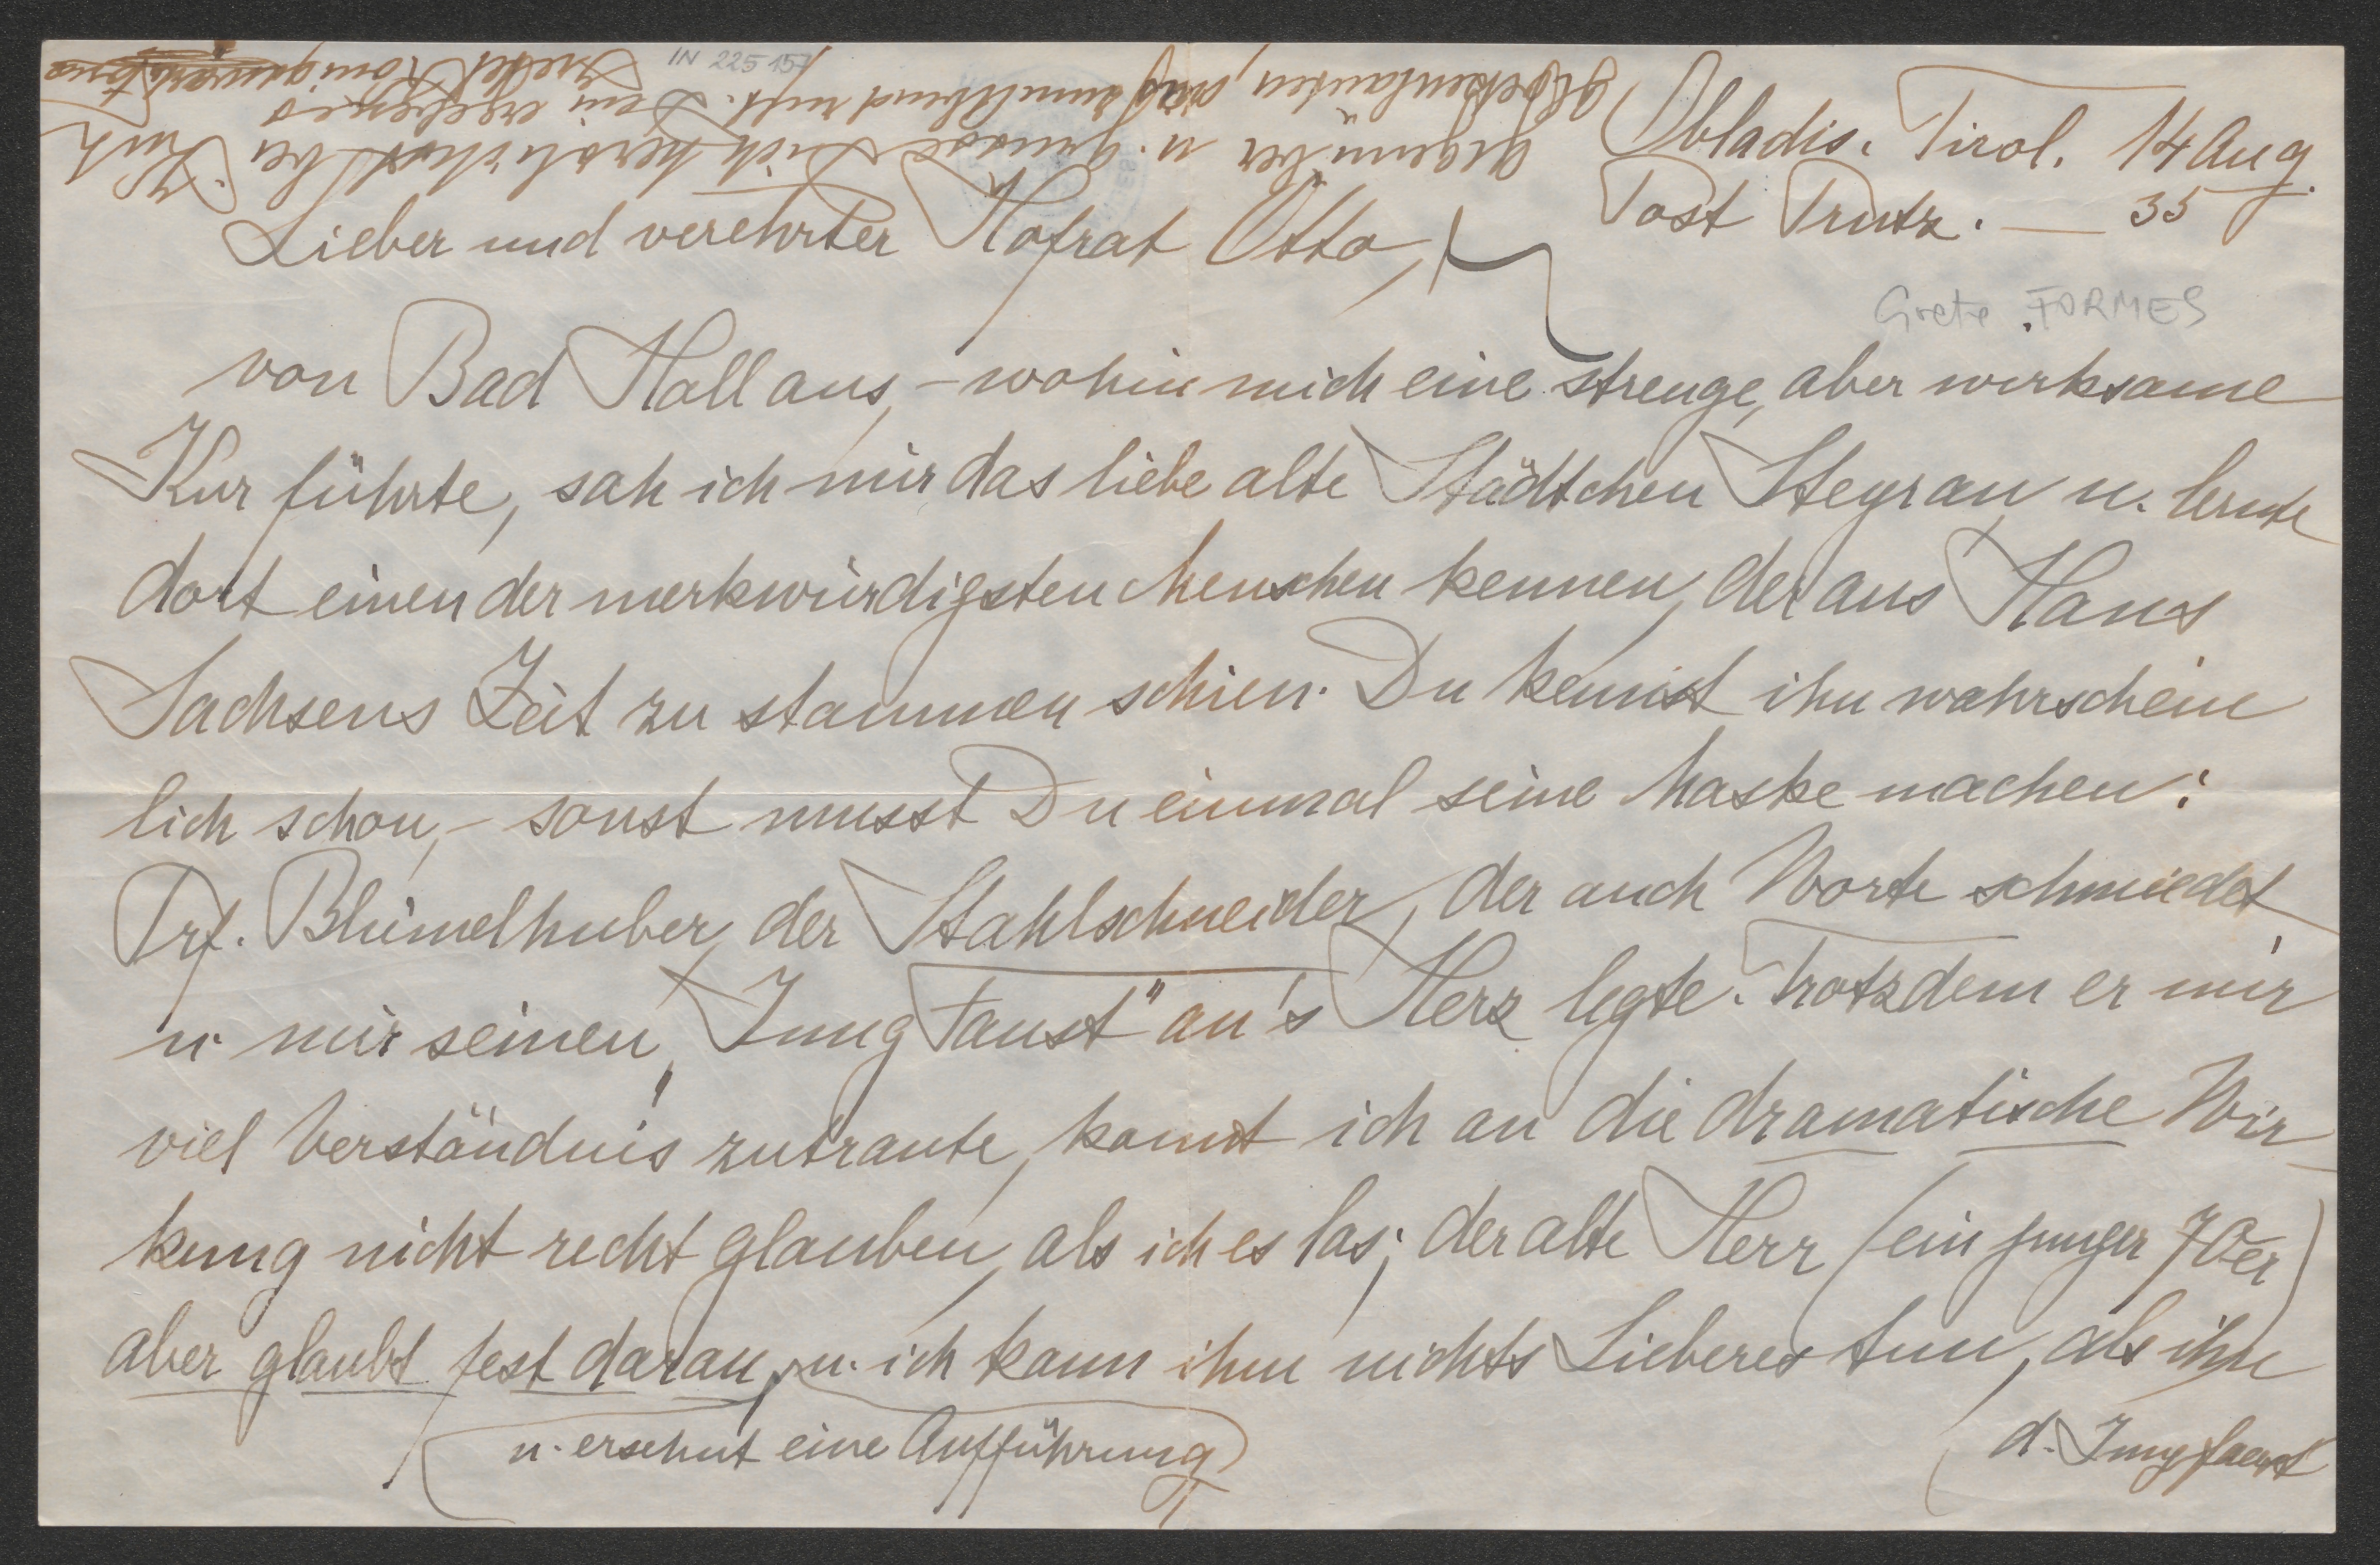 Obladis. Tirol. 14 Aug.
Post Prutz. — 35
IN 225 157
Grete FORMES
Lieber und verehrter Hofrat Otto,
von Bad Hall aus, – wohin mich eine strenge, aber wirksame
Kur führte, sah ich mir das liebe alte Städtchen Steyr an u. lernte
dort einen der merkwürdigsten Menschen kennen, der aus Hans
Sachsens Zeit zu stammen schien. Du kennst ihn wahrschein
lich schon, – sonst musst Du einmal seine Maske machen:
Prf. Blümelhuber, der Stahlschneider, der auch Worte schmiedet
u. mir seinen „Jung Faust" an's Herz legte. Trotzdem er mir
viel Verständnis zutraute, konnt ich an die dramatische Wir
kung nicht recht glauben, als ich es las; der alte Herr (ein junger 70er)
aber glaubt fest daran, u. ich kann ihm nichts Lieberes tun, als ihn
u. ersehnt eine Aufführung
d. Jungfaust
gegenüber u. grüsse Dich herzlichst bei
Glockenläuten, Dein ergebenes